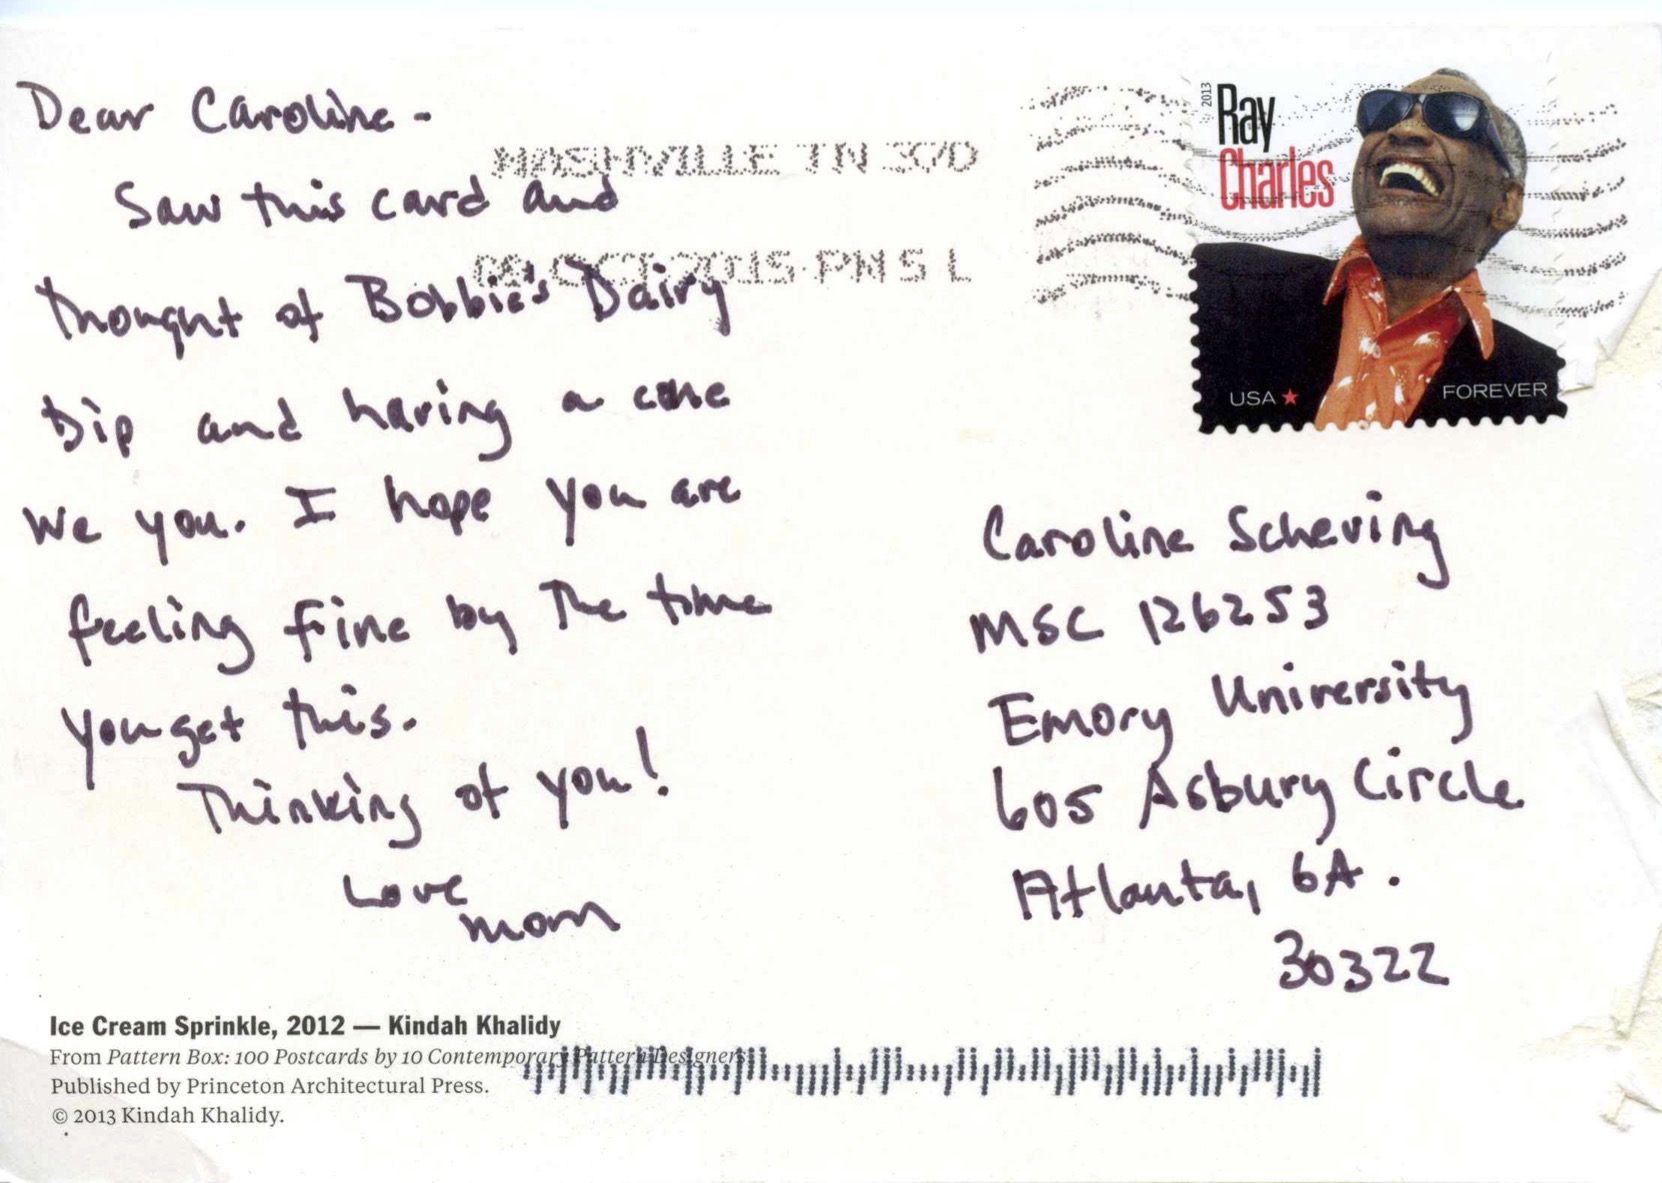 Dear Caroline -
Saw this card and
thought of Bobbie's Dairy
Dip and having a cone
we you. I hope you are
feeling fine by the time
you get this.
Thinking of you!
Love
mom
NASHVILLE TN 370
OCT 2015 PM 5 L
2013
Ray
Charles
USA
FOREVER
Caroline Scheving
MSC 126253
Emory University
605 Asbury Circle
Atlanta, GA.
30322
Ice Cream Sprinkle, 2012 — Kindah Khalidy
From Pattern Box: 100 Postcards by 10 Contemporary Pattern Designers
Published by Princeton Architectural Press.
© 2013 Kindah Khalidy.